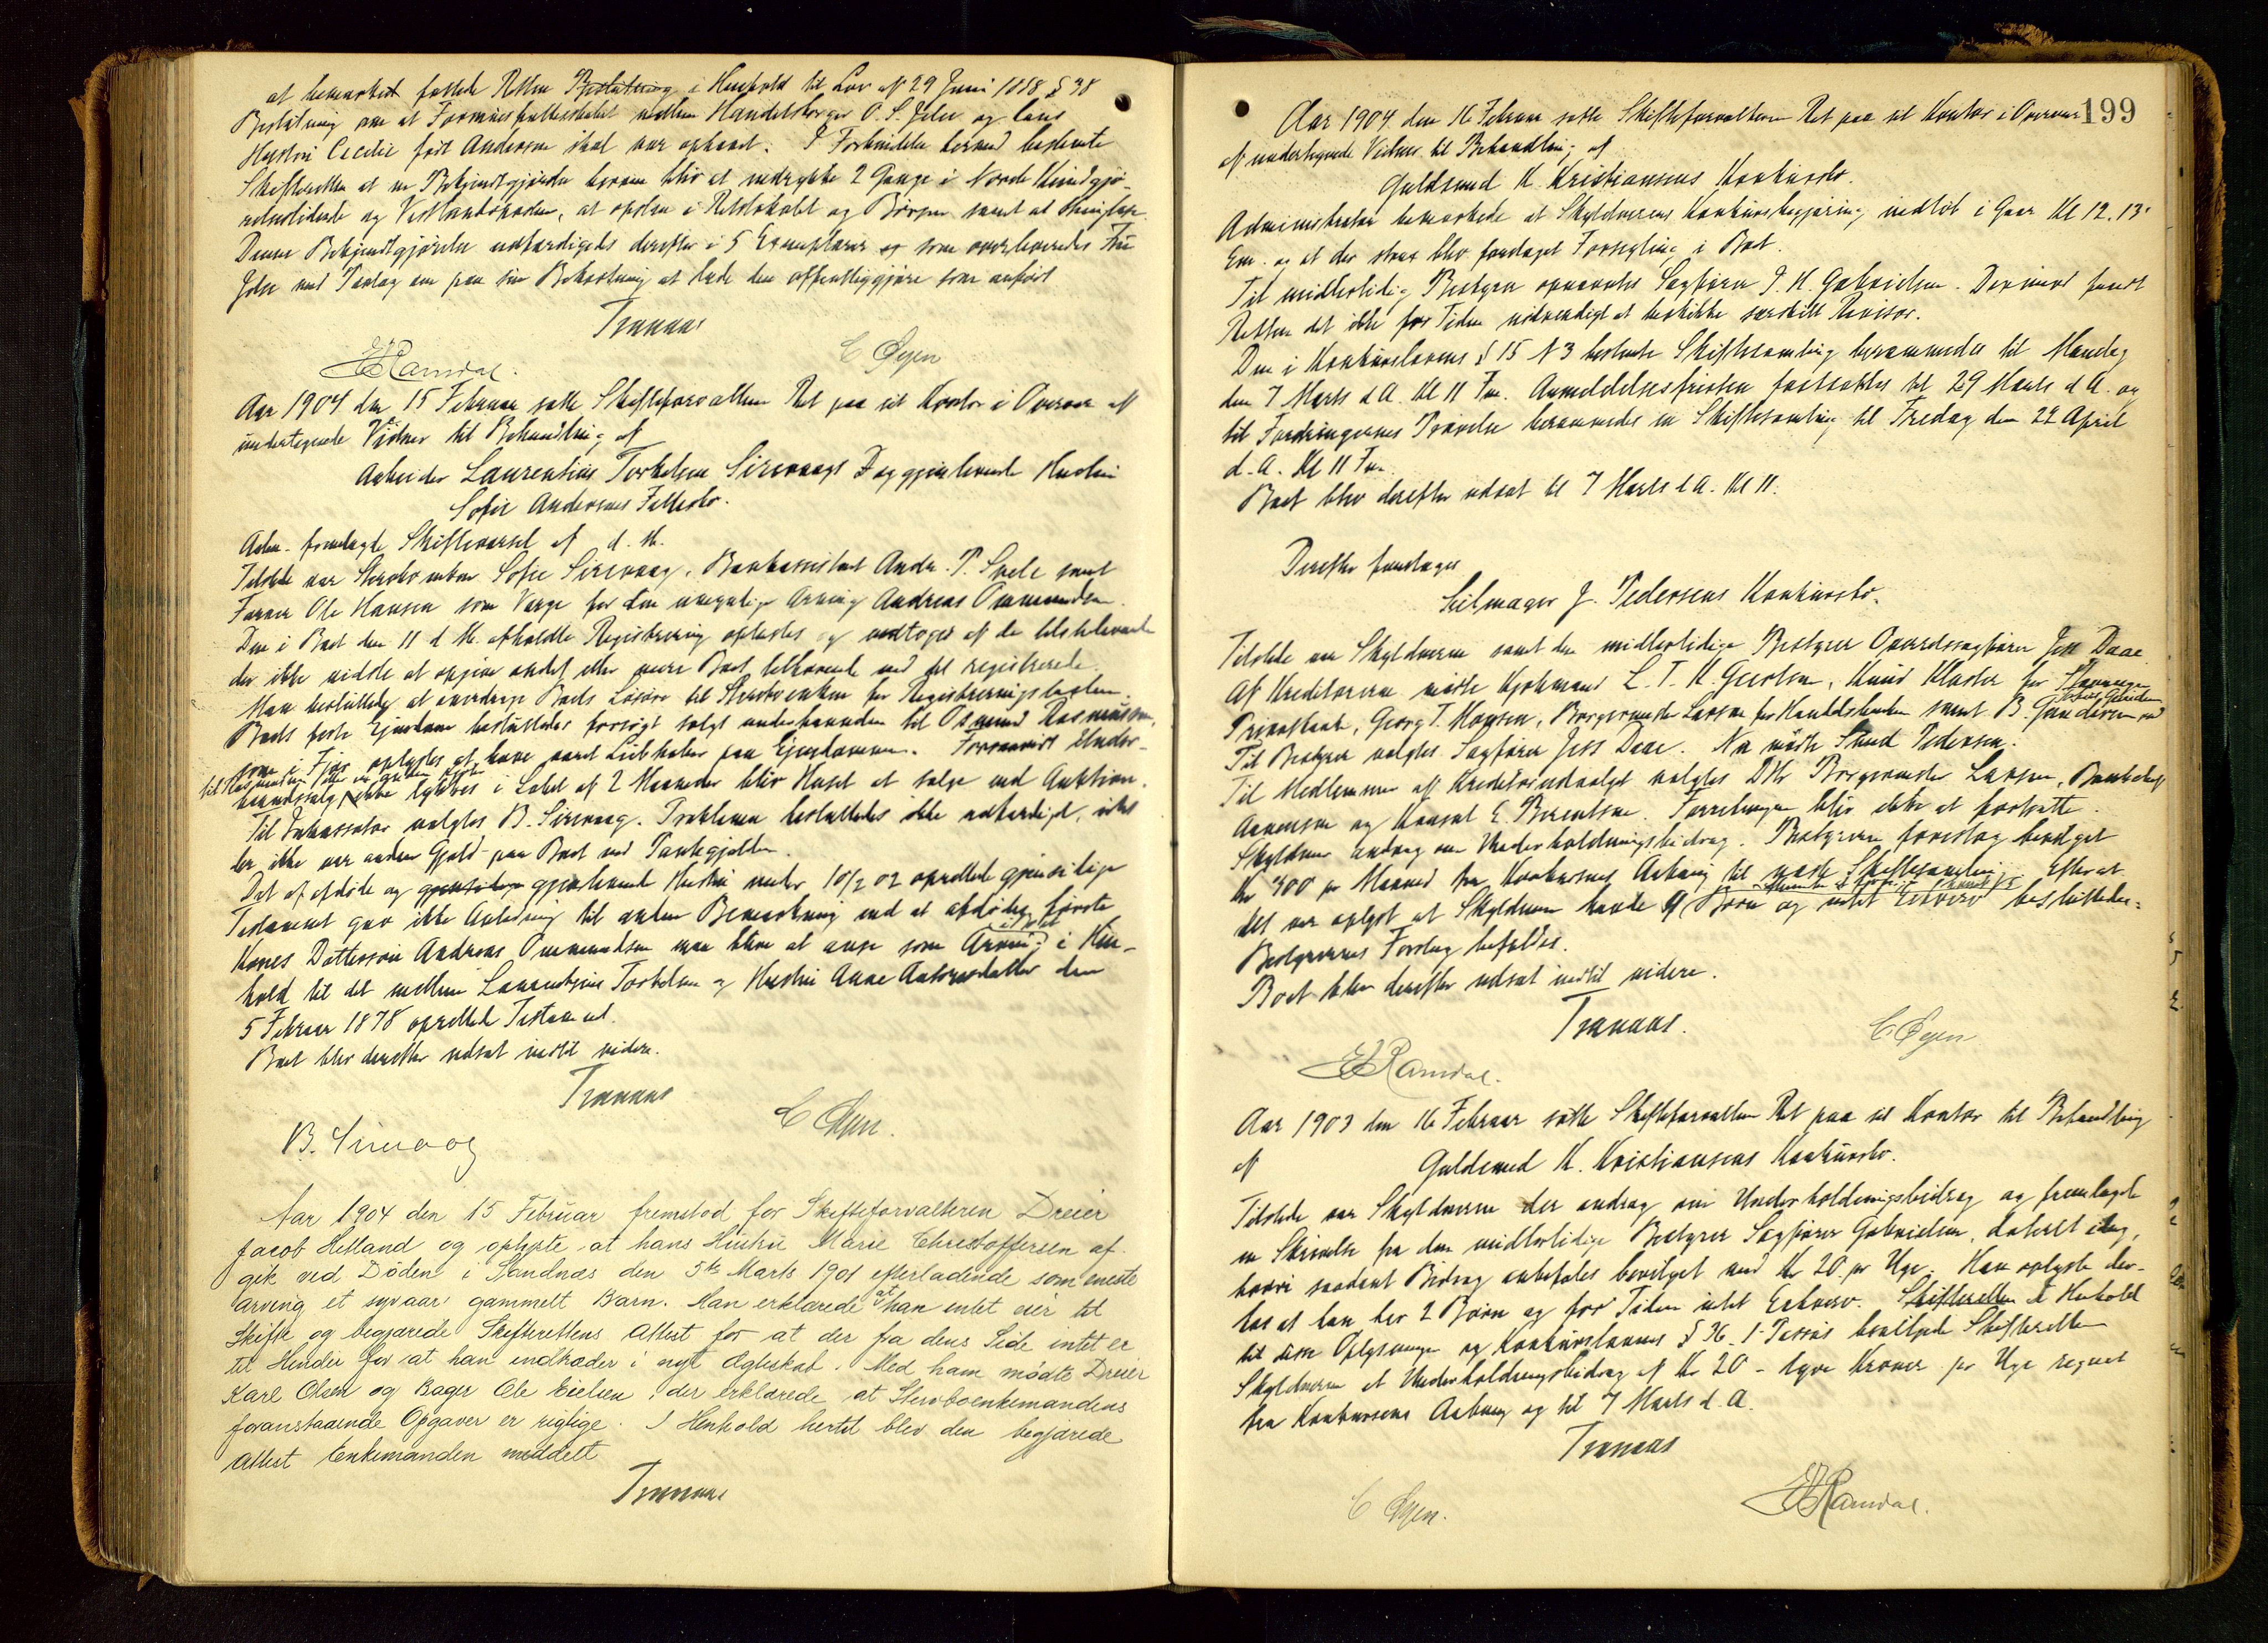 at bemærket fattede Retten Beslutning i Henhold til Lov af 29 Juni 1888 § 38
Beslutning om at Formuesfællesskabet mellem Handelsborger O. S. Jelse og hans
Hustru Cecilie født Anderson skal være ophævet. I Forbindelse hermed bestemte
Skifteretten at en Bekjendtgjørelse herom bliver at indrykke 2 Gange i Norske Kundgjø-
relsestidende og Vestlandsposten, at opslaa i Retslokalet og Børsen samt at thinglæse.
Denne Bekjendtgjørelse udfærdigedes derefter i 5 Exemplarer som overleveredes Fru
Jelse med Paalæg om paa sin Bekostning at lade den offentliggjøre som anført
Tranaas
E Ramdal. C Øyen
Aar 1904 den 15 Februar satte Skifteforvalteren Ret paa sit Kontor i Overvær af
undertegnede Vidner til Behandling af
Arbeider Laurentius Torkelsen Sirevaags og gjenlevende Hustru
Sofie Andersens Fællesbo.
Adm. fremlagde Skiftevarsel af d. M.
Tilstede var Sterboenken Sofie Sirevaag, Bankassistent Andr. P. Svele samt
Farver Ole Hansen som Værge for den umyndige Arving Andreas Ommundsen.
Den i Boet den 11 d M. afholdte Registrering oplæstes og vedtoges af de tilstedeværende
der ikke vidste at opgive andet eller mere Boet tilhørende end det registrerede.
Man besluttede at overdrage Boets Løsøre til Sterboenken for Registreringstaksten.
Boets faste Eiendom besluttedes forsøgt solgt underhaanden til Osmund Rasmussen,
som i Fjor oplystes at have været Liebhaver paa Eiendommen. Forsaavidt Under-
haandssalg til Rasmussen eller en anden Kjøber ikke lykkes i Løbet af 2 Maaneder bliver Huset at sælge ved Auktion.
Til Inkassator valgtes B. Sirevaag. Proklama besluttedes ikke udfærdiget, idet
der ikke var anden Gjæld paa Boet end Pantegjælden.
Det af afdøde og gjensidige gjenlevende Hustru under 10/2 02 oprettede gjensidige
Testament gav ikke Anledning til anden Bemærkning end at afdødes første
Kones Dattersøn Andreas Ommundsen maa blive at anse som Arving i Hen-
hold til det mellem Laurentzius Torkelsen og Hustru Anne Andersdatter den
5 Februar 1878 oprettede Testament.
Boet blev derefter udsat indtil videre.
Tranaas
B. Sirevaag C Øyen.
Aar 1904 den 15 Februar fremstod for Skifteforvalteren Dreier
Jacob Hetland og oplyste at hans Hustru Marie Christoffersen af-
gik ved Døden i Sandnæs den 5te Marts 1901 efterladende som eneste
arving et syvaar gammelt Barn. Han erklærede at han intet eier til
Skifte og begjærede Skifterettens Attest for at der fra dens Side intet er
til Hinder for at han indtræder i nyt Ægteskab. Med ham mødte Dreier
Karl Olsen og Bager Ole Eielsen der erklærede at Sterboenkemandens
foranstaaende Opgaver er rigtige. I Henhold hertil blev den begjærede
Attest Enkemanden meddelt
Tranaas
199
Aar 1904 den 16 Februar satte Skifteforvalteren Ret paa sit Kontor i Overvær
af undertegnede Vidner til Behandling af
Guldsmed K. Kristiansens Konkursbo.
Administrator bemærkede at Skyldnerens Konkursbegjæring indløb i Gaar Kl 12.15
Em. og at der strax blev foretaget Forsegling i Boet.
Til midlertidig Bestyrer opnævntes Sagfører J. K. Gabrielsen. Derimod fandt
Retten det ikke for Tiden nødvendigt at beskikke særskilt Revisor.
Den i Konkurslovens § 15 N 3 bestemte Skiftesamling berammedes til Mandag
den 7 Marts d A. Kl 11 Fm. Anmeldelsesfristen fastsattes til 29 Marts d A. og
til Fordringernes Prøvelse berammedes en Skiftesamling til Fredag den 22 April
d. A. Kl 11 Fm.
Boet blev derefter udsat til 7 Marts d A. Kl 11.
Derefter foretoges
Seilmager J. Pedersens Konkursbo.
Tilstede var Skyldneren samt den midlertidige Bestyrer Overretssagfører Jess Daae
Af Kreditorerne mødte Kjøbmand L. T. K. Geertsen, Knud Kloster for Stavanger
Privatbank, Georg T. Monsen, Borgermester Larsen for Handelsbanken samt B. Gundersen ved
Til Bestyrer valgtes Sagfører Jess Daae. Nu mødte Svend Pedersen.
Til Medlemmer af Kreditorudvalget valgtes DHr Borgermester Larsen, Bankchef
Aanensen og Konsul E. Berentsen. Forretningen bliver ikke at fortsætte.
Skyldneren androg om Underholdningsbidrag. Bestyreren foreslog bevilget
Kr 400 pr Maaned fra Konkursens Aabning til næste Skiftesamling. Efterat
det var oplyst at Skyldneren havde 9 Børn og intet Erhverv besluttedes
Bestyrerens Forslag befulgt.
Boet blev derefter udsat indtil videre.
Tranaas.
C Øyen
E Ramdal.
Aar 1903 den 16 Februar satte Skifteforvalteren Ret paa sit Kontor til Behandling
af Guldsmed K. Kristiansens Konkursbo.
Tilstede var Skyldneren der androg om Underholdningsbidrag og fremlagde
en Skrivelse fra den midlertidige Bestyrer Sagfører Gabrielsen, dateret idag,
hvori saadant Bidrag anbefales bevilget med Kr 20 pr Uge. Han oplyste der-
hos at han har 2 Børn og for Tiden intet Erhverv. Skifteretten I Henhold
til disse Oplysninger og Konkurslovens § 36 1 Passus bevilgede Skifteretten
Skyldneren et Underholdningsbidrag af Kr 20 - tyve Kroner pr Uge regnet
fra Konkursens Aabning og til 7 Marts d. A.
Tranaas
C Øyen. E Ramdal.